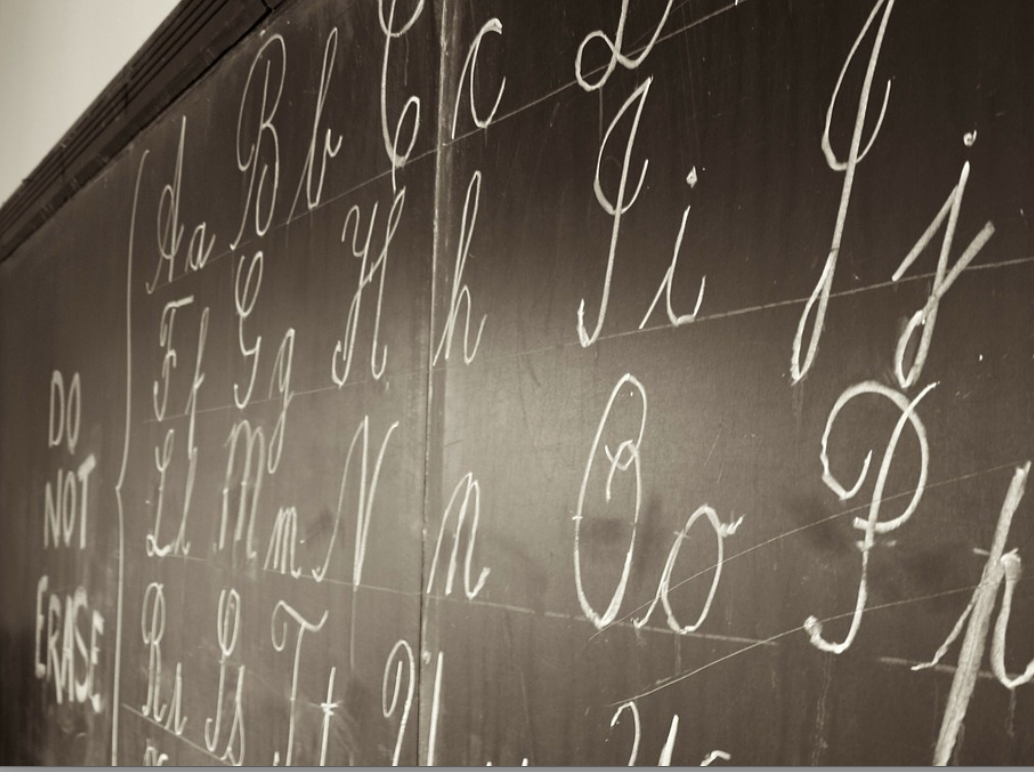 DO
NOT
ERASE
A a B b C c D
F f G g H h I i J j
L l M m N n O o P p
R r S s T t U